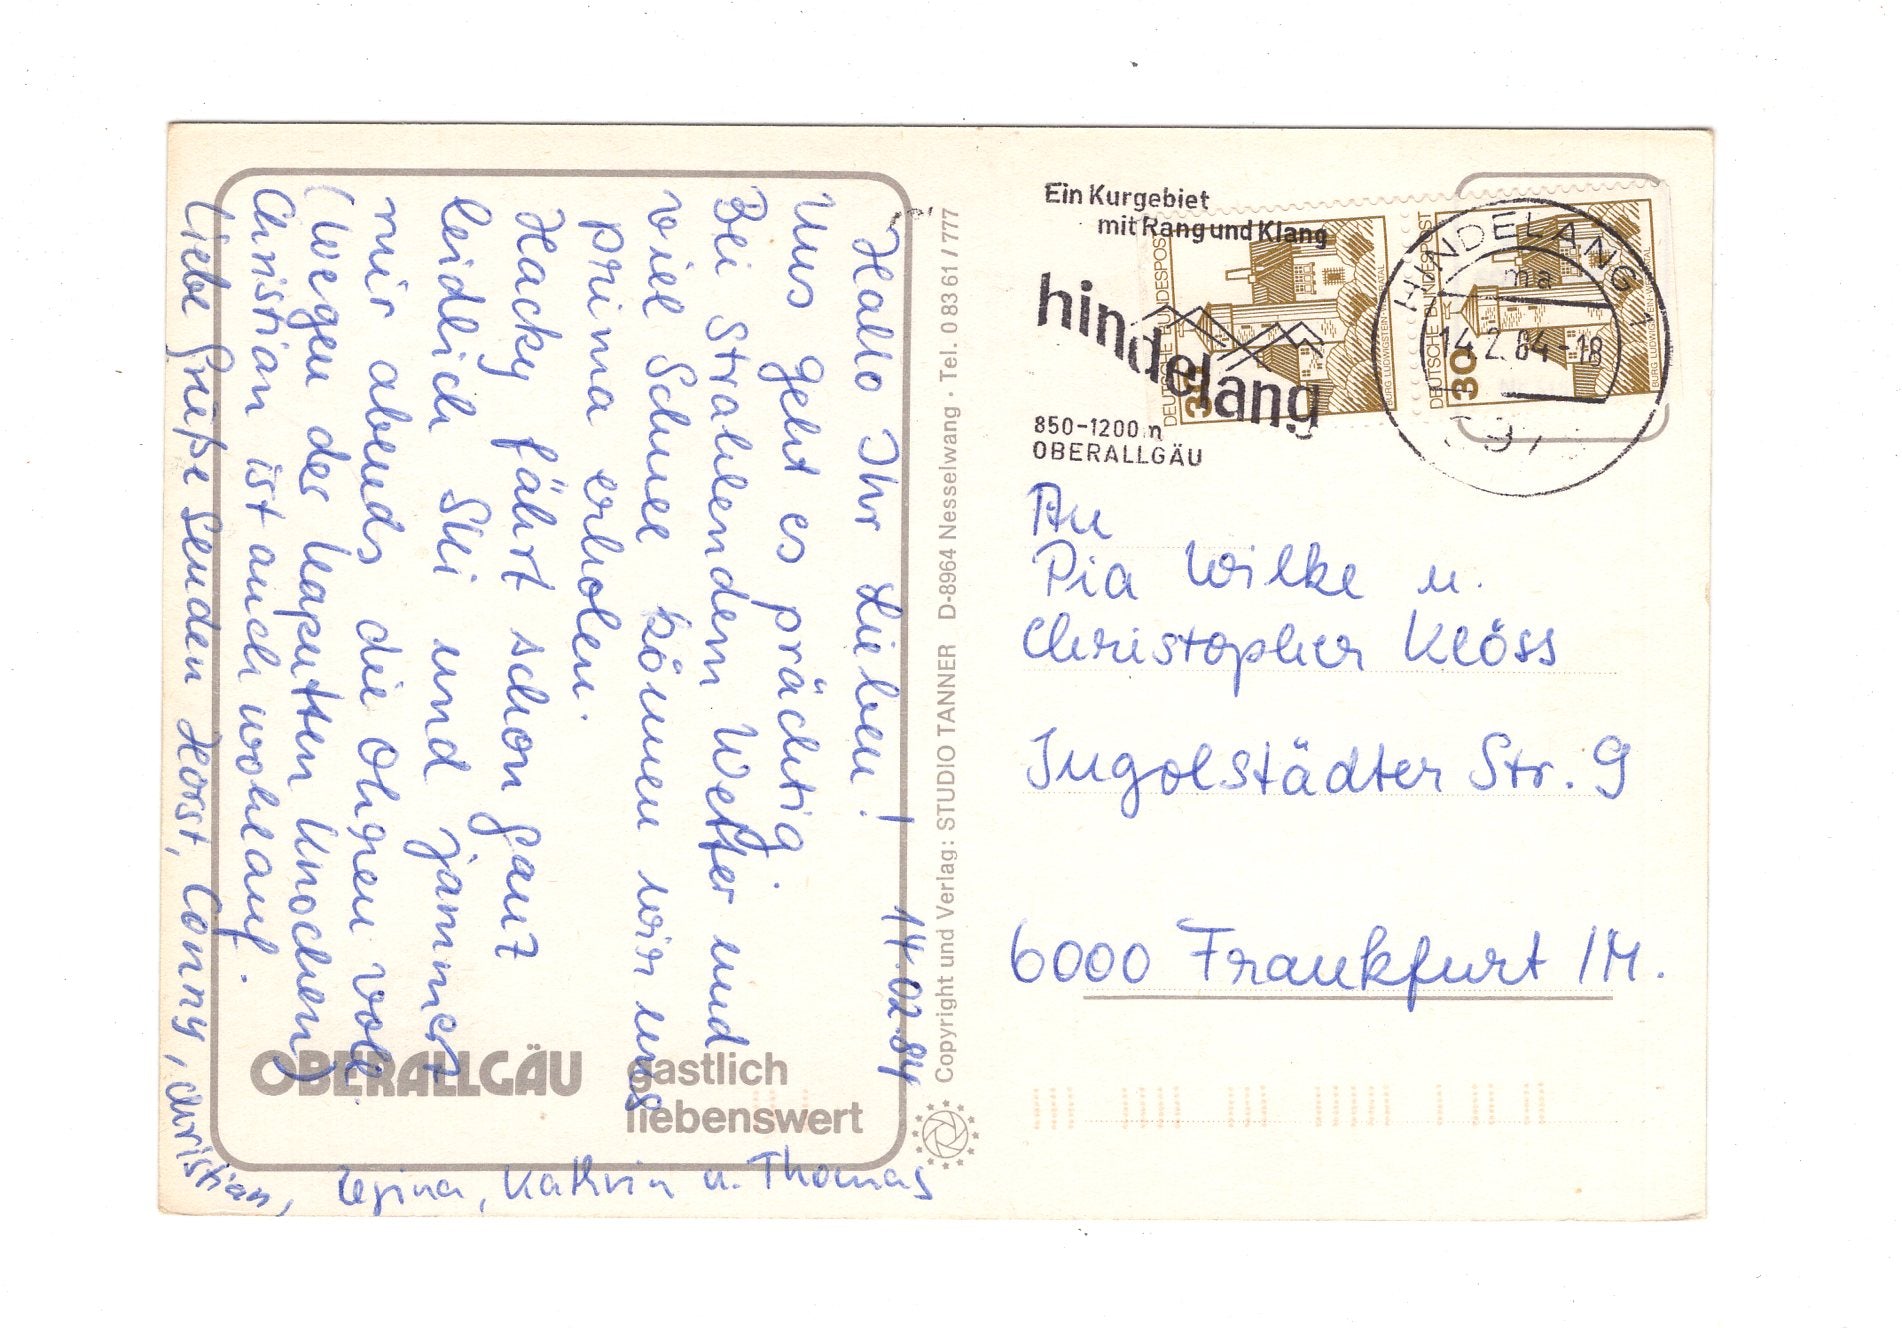 14.02.84
Hallo Ihr Lieben!
Uns geht es prächtig.
Bei Strahlendem Wetter und
viel Schnee können wir uns
prima erholen.
Hacky fährt schon ganz
leidlich Ski und jammert
mir abends die Ohren voll
(Wegen der kaputten Knochen)
Christian ist auch wohlauf.
Liebe Grüße senden Horst, Conny, Christian,
Regina, Kathrin u. Thomas
OBERALLGÄU
gastlich
liebenswert
Copyright und Verlag: STUDIO TANNER D-8964 Nesselwang · Tel. 0 83 61 / 777
Ein Kurgebiet
mit Rang und Klang
hindelang
850-1200 m
OBERALLGÄU
DEUTSCHE BUNDESPOST
30
BURG LUDWIGSTEIN WERRATAL
DEUTSCHE BUNDESPOST
30
BURG LUDWIGSTEIN WERRATAL
HINDELANG 1
ma
14.2.84-18
An
Pia Wilke u.
Christopher Klöss
Ingolstädter Str. 9
6000 Frankfurt /M.